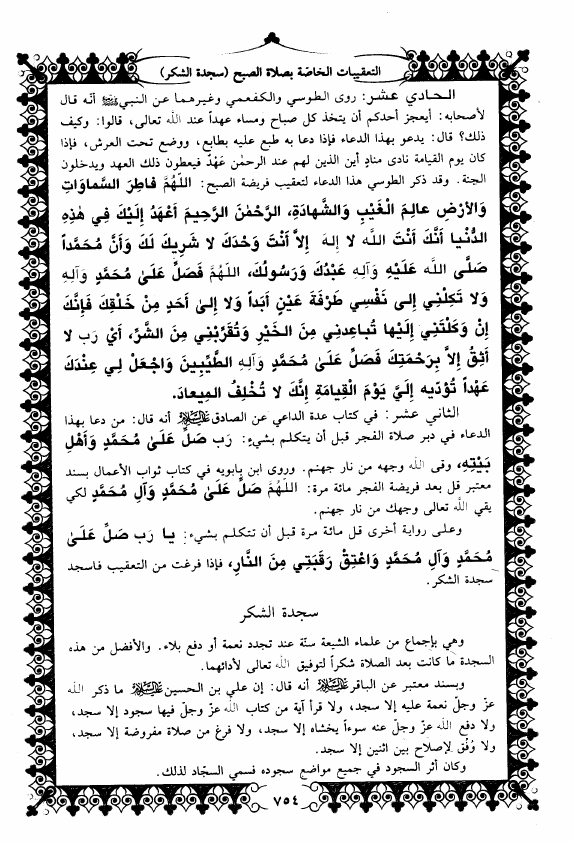 التعقيبات الخاصّة بصلاة الصبح (سجدة الشكر)
الحادي عشر: روى الطوسي والكفعمي وغيرهما عن النبي ﷺ أنّه قال
لأصحابه: أيعجز أحدكم أن يتخذ كل صباح ومساء عهداً عند الله تعالى، قالوا: وكيف
ذلك؟ قال: يدعو بهذا الدعاء فإذا دعا به طبع عليه بطابع، ووضع تحت العرش، فإذا
كان يوم القيامة نادى منادٍ أين الذين لهم عند الرحمٰن عَهْدٌ فيعطون ذلك العهد ويدخلون
الجنة. وقد ذكر الطوسي هذا الدعاء لتعقيب فريضة الصبح: اللهُمَّ فاطِرَ السَّماواتِ
وَالأرْضِ عالِمَ الْغَيْبِ وَالشَّهادَةِ، الرَّحْمٰنَ الرَّحيمَ أعْهَدُ إلَيْكَ فِي هٰذِهِ
الدُّنْيا أنَّكَ أنْتَ الله لا إلهَ إلاَّ أنْتَ وَحْدَكَ لا شَريكَ لَكَ وَأنَّ مُحَمَّداً
صَلَّى الله عَلَيْهِ وَآلِهِ عَبْدُكَ وَرَسُولُكَ، اللهُمَّ فَصَلِّ عَلىٰ مُحَمَّدٍ وَآلِهِ
وَلا تَكِلْنِي إلى نَفْسِي طَرْفَةَ عَيْنٍ أبَداً وَلا إلىٰ أحَدٍ مِنْ خَلْقِكَ فَإنَّكَ
إنْ وَكَلْتَنِي إلَيْها تُباعِدنِي مِنَ الخَيْرِ وَتُقَرِّبْنِي مِنَ الشَّرِّ، أيْ رَب لا
أثِقُ إلاَّ بِرَحْمَتِكَ فَصَلِّ عَلىٰ مُحَمَّدٍ وَآلِهِ الطَّيِّبِينَ وَاجْعَلْ لِي عِنْدَكَ
عَهْداً تُؤَدِّيه إلَيَّ يَوْمَ القِيامَةِ إنَّكَ لا تُخْلِفُ المِيعادَ.
الثاني عشر: في كتاب عدة الداعي عن الصادق عليه السلام أنه قال: من دعا بهذا
الدعاء في دبر صلاة الفجر قبل أن يتكلم بشيءٍ: رَب صَلِّ عَلىٰ مُحَمَّدٍ وَأهْلِ
بَيْتِهِ، وقى الله وجهه من نار جهنم. وروى ابن بابويه في كتاب ثواب الأعمال بسند
معتبر قل بعد فريضة الفجر مائة مرة: اللهُمَّ صَلِّ عَلىٰ مُحَمَّدٍ وَآلِ مُحَمَّدٍ لكي
يقي الله تعالى وجهك من نار جهنم.
وعلى رواية أخرى قل مائة مرة قبل أن تتكلم بشيء: يا رَب صَلِّ عَلىٰ
مُحَمَّدٍ وَآلِ مُحَمَّدٍ وَاعْتِقْ رَقَبَتِي مِنَ النَّارِ، فإذا فرغت من التعقيب فاسجد
سجدة الشكر.
سجدة الشكر
وهي بإجماع من علماء الشيعة سنّة عند تجدد نعمة أو دفع بلاء. والأفضل من هذه
السجدة ما كانت بعد الصلاة شكراً لتوفيق الله تعالى لأدائهما.
وبسند معتبر عن الباقر عليه السلام أنه قال: إن علي بن الحسين عليه السلام ما ذكر الله
عزّ وجلّ نعمة عليه إلا سجد، ولا قرأ آية من كتاب الله عزّ وجلّ فيها سجود إلا سجد،
ولا دفع الله عزّ وجلّ عنه سوءاً يخشاه إلا سجد، ولا فرغ من صلاة مفروضة إلا سجد،
ولا وُفّق لإصلاح بين اثنين إلا سجد.
وكان أثر السجود في جميع مواضع سجوده فسمي السجّاد لذلك.
٧٥٤